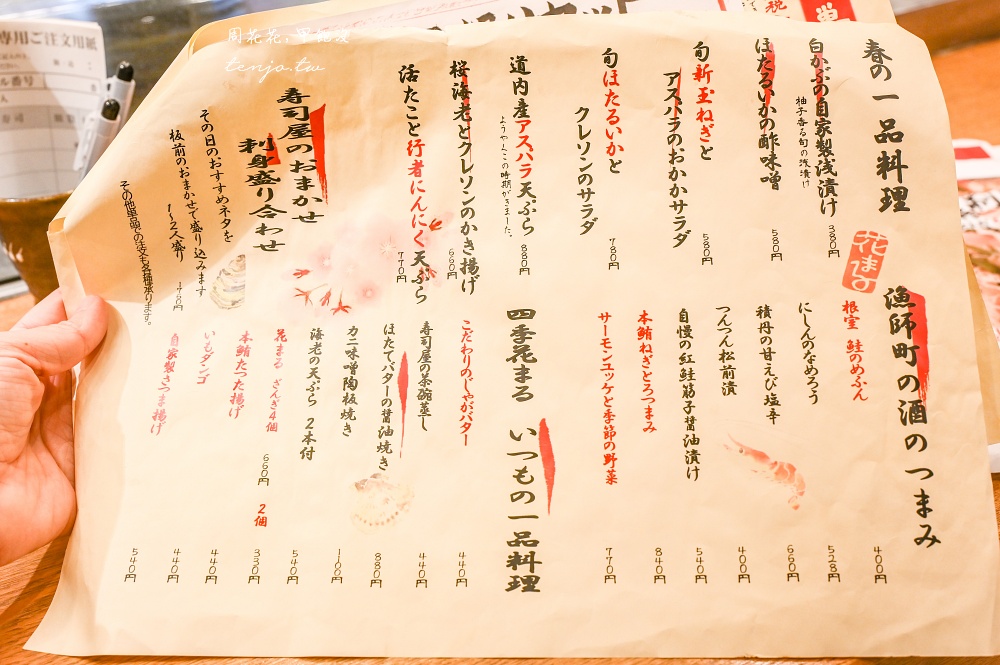 春の一品料理
白かぶの自家製浅漬け
柚子香る旬の浅漬け
380円
ほたるいかの酢味噌
580円
旬 新玉ねぎと
アスパラのおかかサラダ
580円
旬 ほたるいかと
クレソンのサラダ
780円
道内産アスパラ天ぷら
ようやくこの時期がきました。
880円
桜海老とクレソンのかき揚げ
660円
活たこと行者にんにく天ぷら
770円
寿司屋のおまかせ
刺身盛り合わせ
その日のおすすめネタを
板前のおまかせで盛り込みます
1〜2人盛り
その他単品での注文も各種承ります。
花まる
漁師町の酒のつまみ
根室 鮭のめふん
400円
にしんのなめろう
528円
積丹の甘えび塩辛
660円
つんつん松前漬
400円
自慢の紅鮭筋子醤油漬け
540円
本鮪ねぎとろつまみ
840円
サーモンユッケと季節の野菜
770円
四季花まる いつもの一品料理
こだわりのじゃがバター
440円
寿司屋の茶碗蒸し
440円
ほたてバターの醤油焼き
880円
カニ味噌陶板焼き
海老の天ぷら 2本付
540円
花まる ざんぎ4個
660円
2個
330円
本鮪たつた揚げ
440円
いもダンゴ
440円
自家製さつま揚げ
540円
専用ご注文用紙
周花花，甲飽沒
tenjo.tw